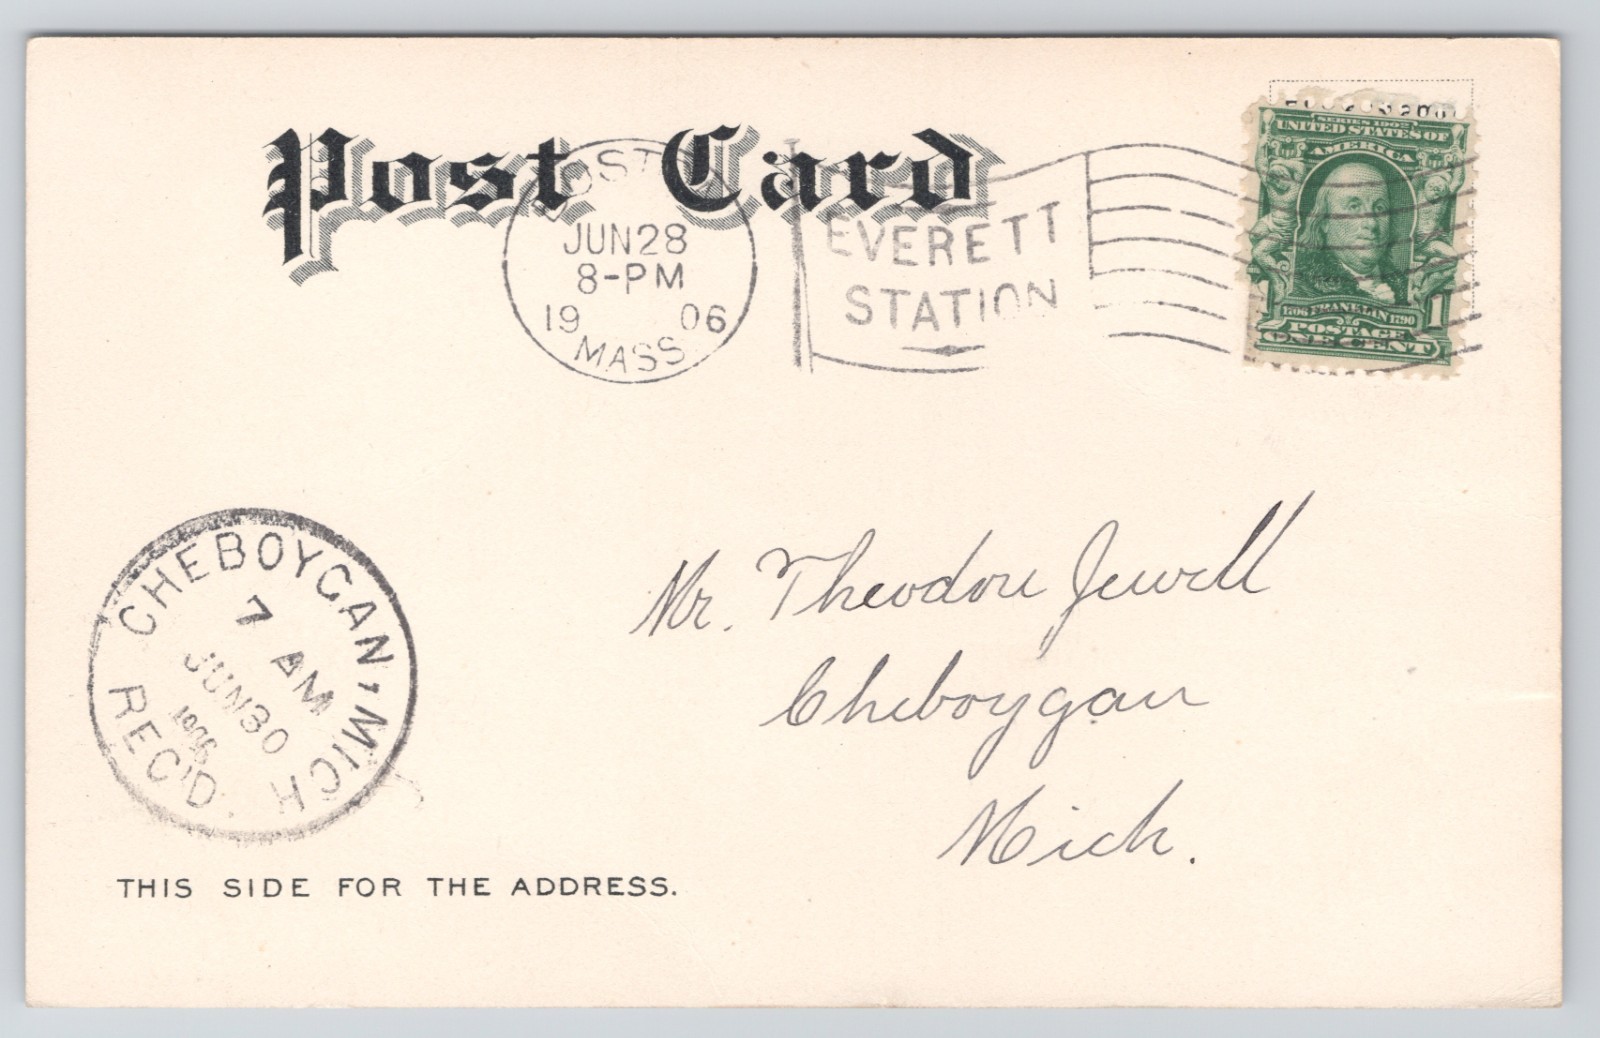 Post Card
BOSTON
JUN 28
8-PM
19 06
MASS.
EVERETT
STATION
SERIES 1902
UNITED STATES OF
AMERICA
1706 FRANKLIN 1790
1 1
POSTAGE
ONE CENT
CHEBOYGAN, MICH
7 AM
JUN 30
1906
REC'D.
Mr. Theodore Jewell
Cheboygan
Mich.
THIS SIDE FOR THE ADDRESS.